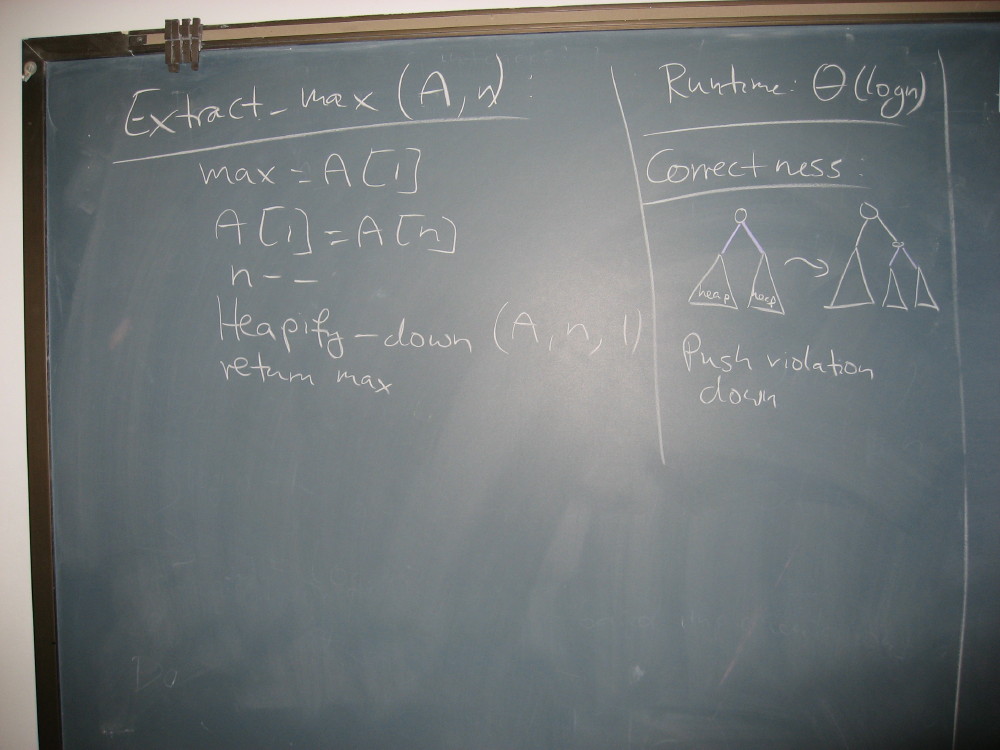 Extract_max (A, n) :
max = A[1]
A[1] = A[n]
n--
Heapify-down (A, n, 1)
return max
Runtime: Θ(log n)
Correctness:
heap heap
Push violation
down